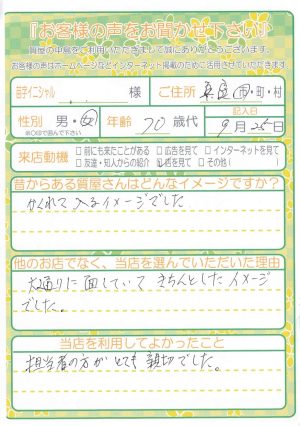 『お客様の声をお聞かせ下さい』
質屋の中島をご利用いただきまして誠にありがとうございます。
お客様の声はホームページなどインターネット掲載のために活用させていただきます。
苗字イニシャル 様 ご住所 市・町・村
性別 男・女 年齢 70歳代 記入日
※○印で囲んで下さい 9月25日
来店動機 □前にも来たことがある □広告を見て □インターネットを見て
□友達・知人からの紹介 看板を見て □その他(
昔からある質屋さんはどんなイメージですか?
かくれて入るイメージでした
他のお店でなく、当店を選んでいただいた理由
大通りに面していて きちんとしたイメージ
でした。
当店を利用してよかったこと
担当者の方がとても親切でした。